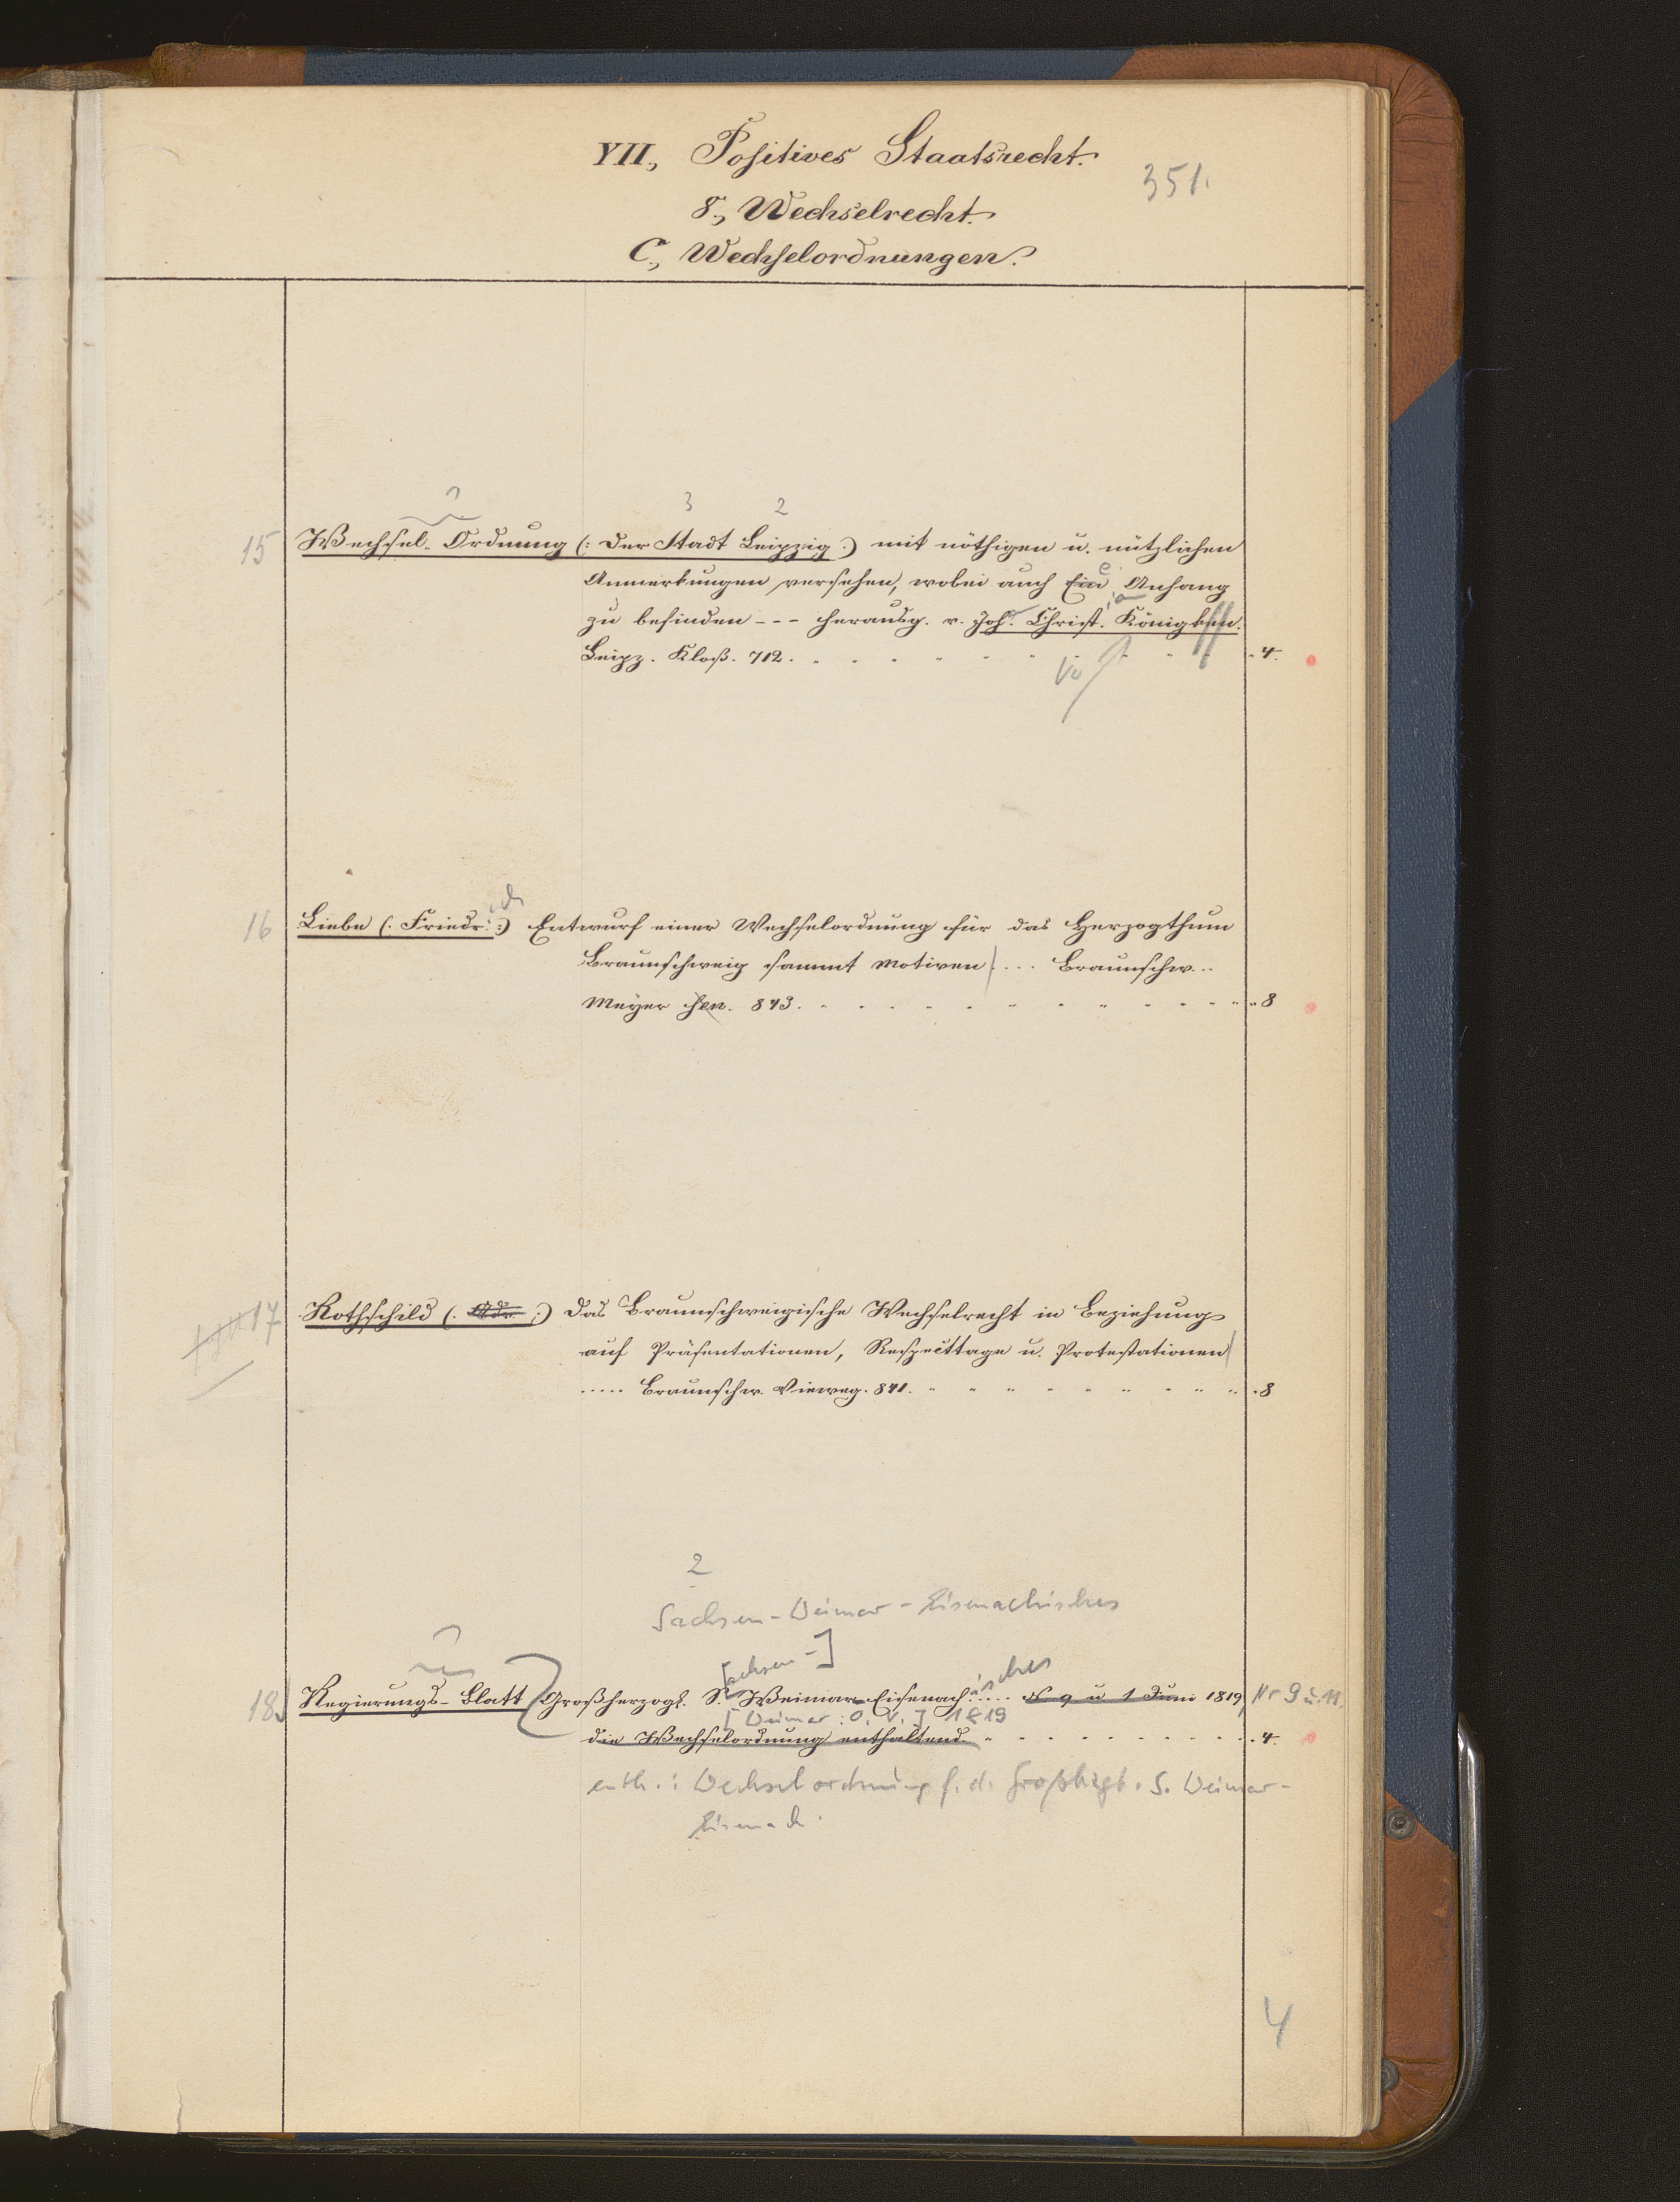 VII., Positives Staatsrecht.
351.
8., Wechselrecht.
C., Wechselordnungen.
1 3 2
15 Wechsel-Ordnung (: der Stadt Leipzig :) mit nöthigen u. nützlichen
Anmerkungen versehen, wobei auch Ein Anhang
zu befinden --- herausg. v. Joh. Christ. Königken.
Leipz. Kloß. 712. 4.
16 Liebe (: Friedr. :) Entwurf einer Wechselordnung für das Herzogthum
Braunschweig sammt Motiven ... Braunschw...
Meyer sen. 843. 8
17 Rothschild (: :) Das Braunschweigische Wechselrecht in Beziehung
auf Präsentationen, Respecttage u. Protestationen
..... Braunschw. Vieweg. 841. 8
2
Sachsen-Weimar-Eisenachisches
[achsen-] isches
18 Regierungs-Blatt Großherzogl. S. Weimar-Eisenach ..... N 9 u 1 Juni 1819 Nr 9 u. 11.
[Weimar: o. V.] 1819
die Wechselordnung enthaltend. 4.
enth.: Wechselordnung f. d. Großhzgt. S. Weimar-
Eisenach.
4